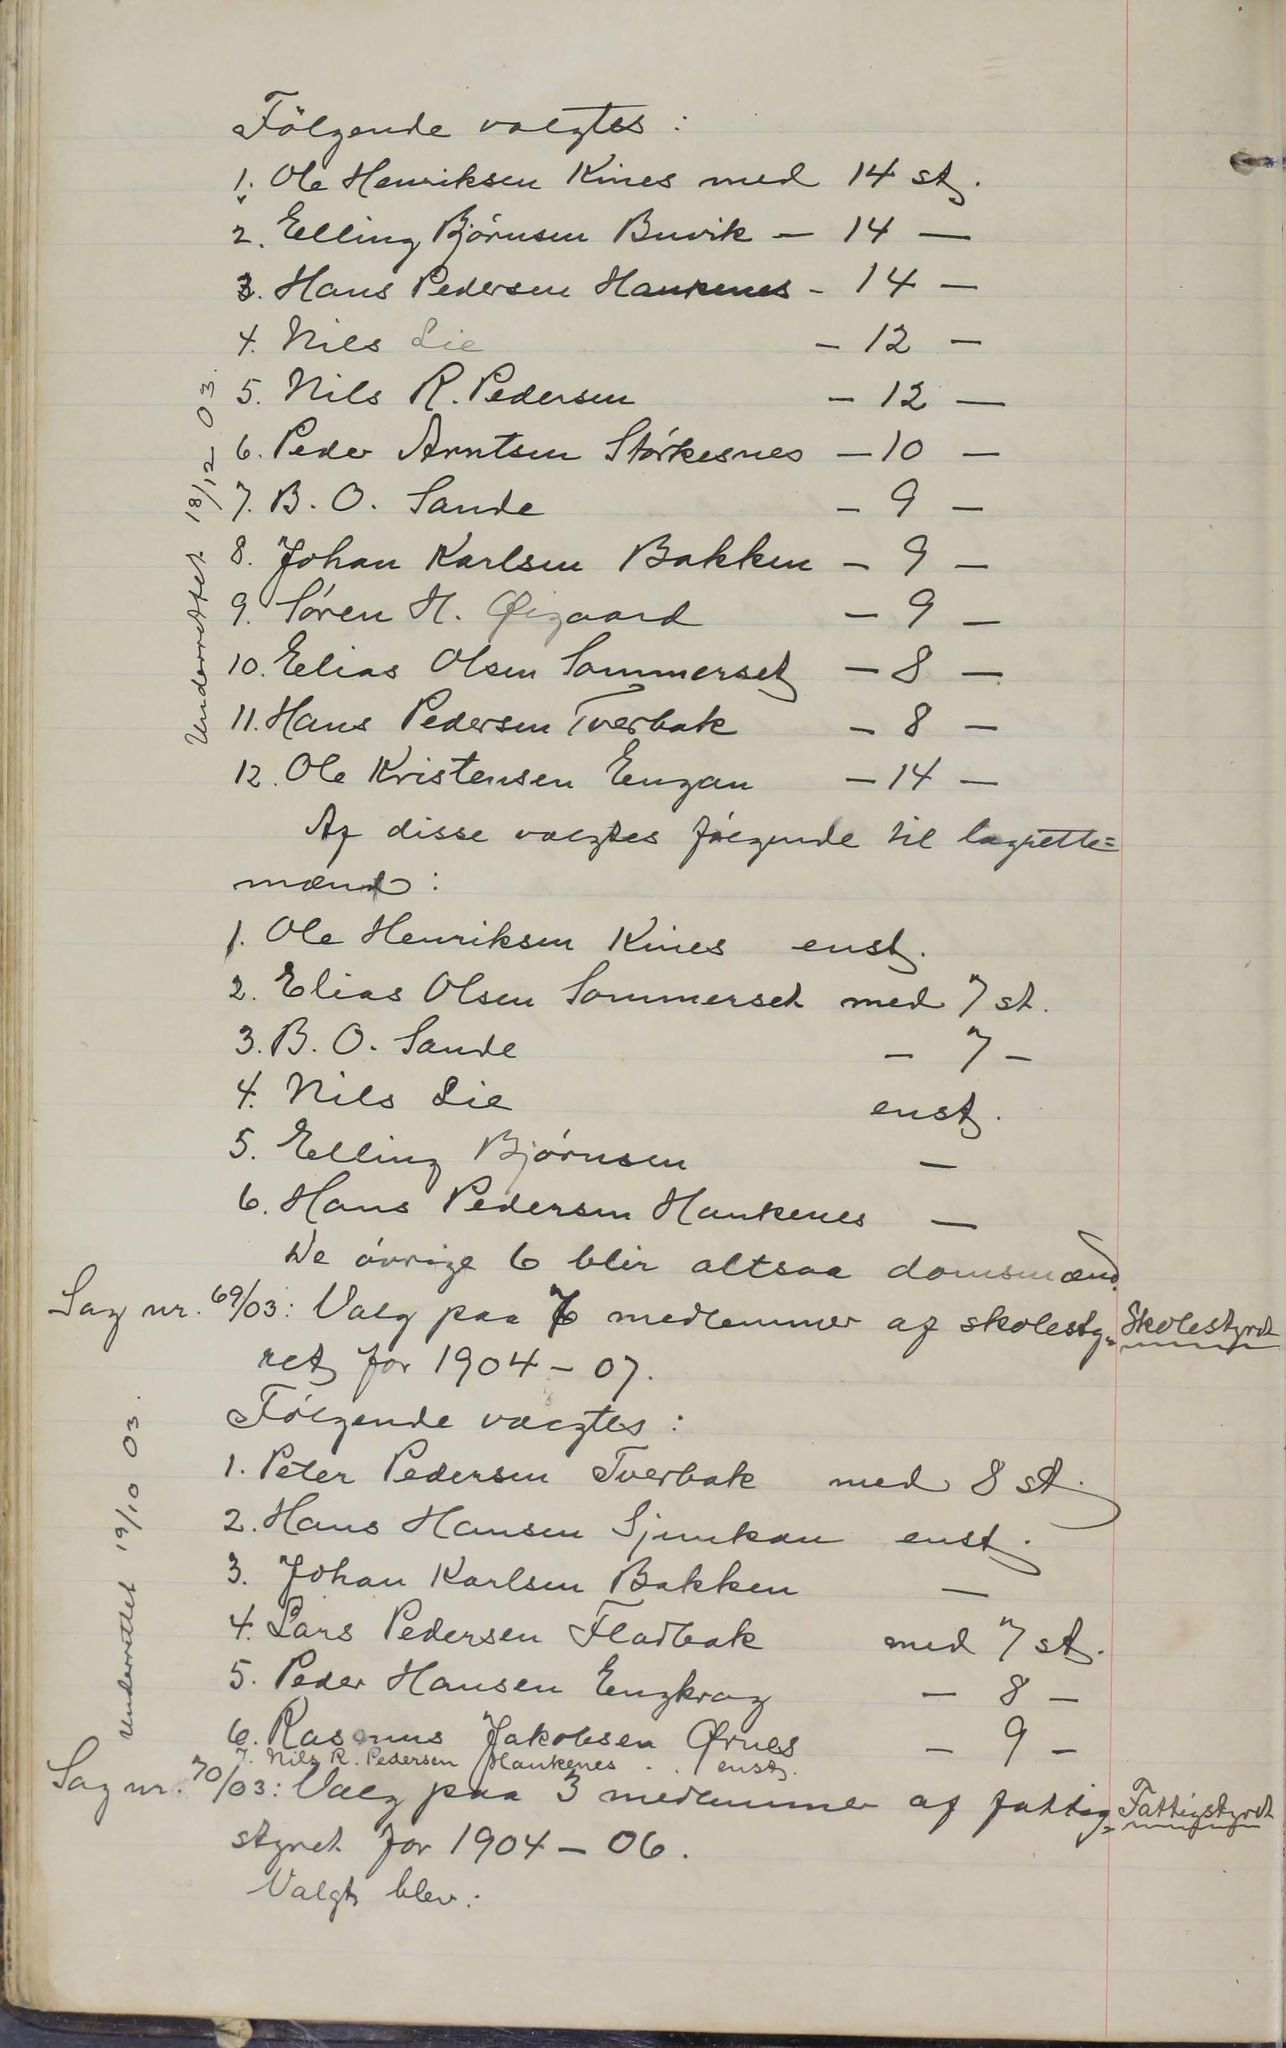 Følgende valgtes:
1. Ole Henriksen Kines med 14 st.
2. Elling Bjørnsen Buvik — 14 —
3. Hans Pedersen Haukenes - 14 —
4. Nils Lie — 12 —
5. Nils R. Pedersen — 12 —
6. Peder Arntsen Störkesnes — 10 —
7. B. O. Sande — 9 —
8. Johan Karlsen Bakken — 9 —
9. Søren H. Øigaard — 9 —
10. Elias Olsen Sommerset — 8 —
11. Hans Pedersen Tverbak — 8 —
12. Ole Kristensen Engan — 14 —
Underrettet 18/12 03.
Af disse valgtes følgende til lagrette=
mænd:
1. Ole Henriksen Kines enst.
2. Elias Olsen Sommerset med 7 st.
3. B. O. Sande — 7 —
4. Nils Lie enst.
5. Elling Bjørnsen —
6. Hans Pedersen Haukenes —
De øvrige 6 blir altsaa domsmænd.
Sag nr. 69/03: Valg paa 7 medlemmer af skolesty=
Skolestyret
ret for 1904 - 07.
Følgende valgtes:
1. Peter Pedersen Tverbak med 8 st.
2. Hans Hansen Sjunkan enst.
3. Johan Karlsen Bakken —
4. Lars Pedersen Fladbak med 7 st.
5. Peder Hansen Engkrog — 8 —
6. Rasmus Jakobsen Ørnes — 9 —
7. Nils R. Pedersen Haukenes . . enst.
Underrettet 19/10 03.
Sag nr. 70/03: Valg paa 3 medlemmer af fattig=
Fattigstyret
styret for 1904 — 06.
Valgt blev: